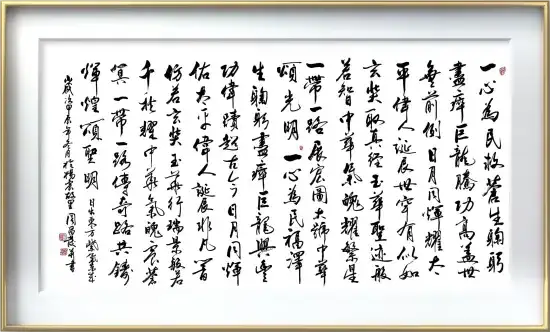 一心為民救蒼生鞠躬
盡瘁巨龍騰功高蓋世
無前倒日月同輝耀太
平偉人誕辰世罕有似如
玄奘取真經玉華聖迹般
若智中華氣魄耀繁星
一帶一路展宏圖大中華
頌光明 一心為民福澤
生鞠躬盡瘁巨龍興豐
功偉蹟超古今日月同輝
佑太平偉人誕辰非凡響
仿若玄奘玉華行瑞榮般若
千秋耀中華氣魄震蒼
冥一帶一路傳奇路共鑄
輝煌頌聖明 日出東方紫氣來
歲次甲辰年冬月於楊家 周 并書